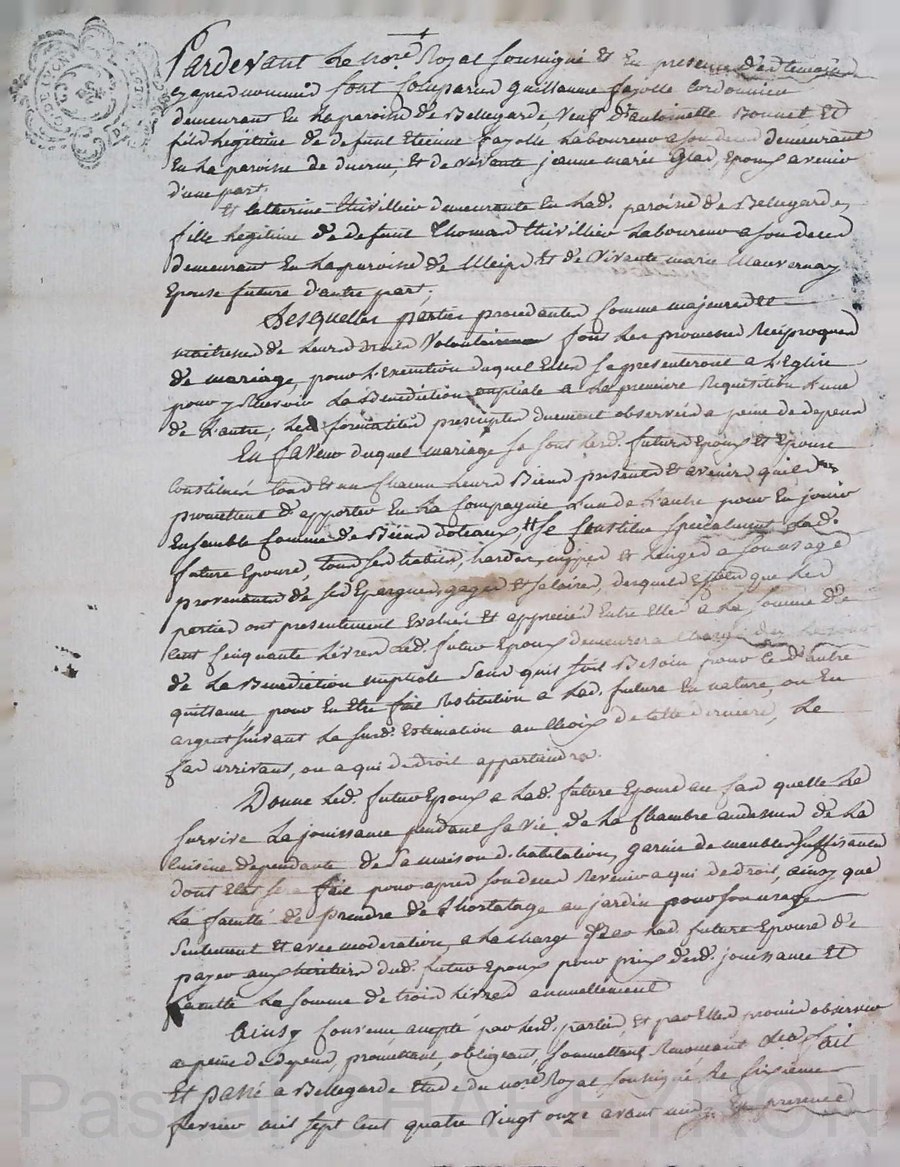 Pardevant Le no.re Royal soussigné et en presence des temoins
cy apres nommés sont comparus Guillaume fayolle cordonnier
demeurant en La paroisse de Bellegarde, veuf d'antoinette Bonnet et
fils Legitime de defunt Etienne fayolle Laboureur a son deces demeurant
en La paroisse de duerne, et de vivante jeanne marie Glas, Epoux avenir
d'une part,
Et Catherine thivillier demeurante en Lad. paroisse de Bellegarde,
fille Legitime de defunt thomas thivillier Laboureur a son deces
demeurant en La paroisse de Meys, et de vivante marie Mauvernay
Epouse future d'autre part,
Lesquelles parties procedantes comme majeures et
maitresses de Leurs droits volontairement font Les promesses Reciproques
de mariage, pour L'Execution duquel Elles se presenteront a L'Eglise
pour y Recevoir La Benediction nuptiale a La premiere Requisition d'une
de L'autre, Les formalités prescriptes duement observées a peine de depens
En faveur duquel mariage se sont Lesd. futurs Epoux et Epouse
Constitués tous et un chacun Leurs Biens presents et avenir qu'ils
promettent d'apporter en La Compagnie L'un de L'autre pour en jouir
Ensemble comme de Biens dotaux, et se constitue specialement Lad.
future Epouse, tous ses habits, hardes, nippes et Linges a son usage
provenants de ses Epargnes, gages et salaires, desquels Effets que Les
parties ont presentement Evalués et appreciés Entre Elles a La somme de
Cent cinquante Livres Led. futur Epoux demeurera chargé des Le jour
de La Benediction nuptiale sans qu'il soit Besoin pour ce d'autre
quittance pour en Etre fait Restitution a Lad. future en nature, ou en
argent suivant La susd. Estimation au choix de cette derniere, Le
cas arrivant, ou a qui de droit appartiendra.
Donne Led. futur Epoux a Lad. future Epouse au cas quelle Le
survive La jouissance pendant sa vie de La Chambre audessus de La
Cuisine dependante de sa maison d'habitation, garnie de meubles suffisants
dont Etat sera fait pour apres son deces Revenir a qui de droit, ainsy que
La faculté de prendre de L'hortolage au jardin pour son usage
seulement et avec moderation, a La charge par Lad. future Epouse de
payer aux heritiers dud. futur Epoux pour prix desd. jouissance et
faculté La somme de trois Livres annuellement
Ainsy convenu, accepté par Lesd. parties, et par Elles promis observer
a peine de depens, promettant, obligeant, soumettant, Renonçant &ca fait
Et passé a Bellegarde Etude du no.re Royal soussigné Le sixieme
fevrier mil sept cent quatre vingt onze avant midy En presence
Pascal CHAREYRON